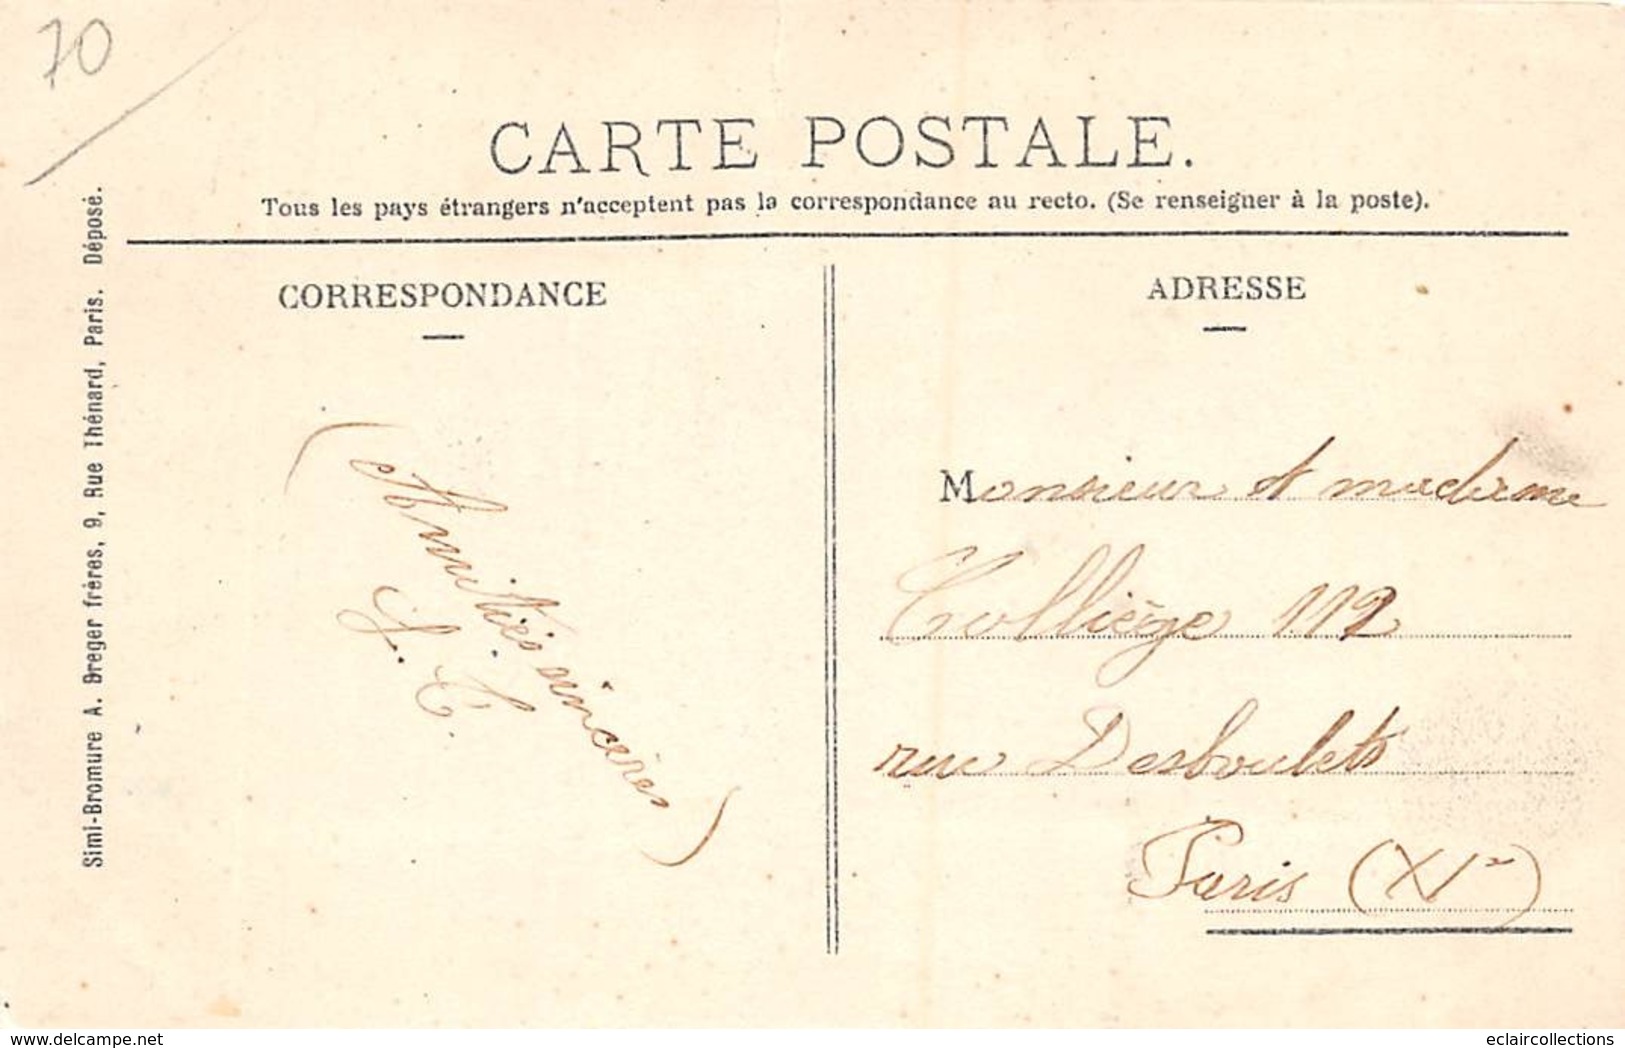 70
CARTE POSTALE.
Tous les pays étrangers n'acceptent pas la correspondance au recto. (Se renseigner à la poste).
Simi-Bromure A. Breger frères, 9, Rue Thénard, Paris. Déposé.
CORRESPONDANCE
(Amitiés sincères
L. C.)
ADRESSE
Monsieur et madame
Colliège 112
rue Desboulets
Paris (XIe)
www.delcampe.net
eclaircollections